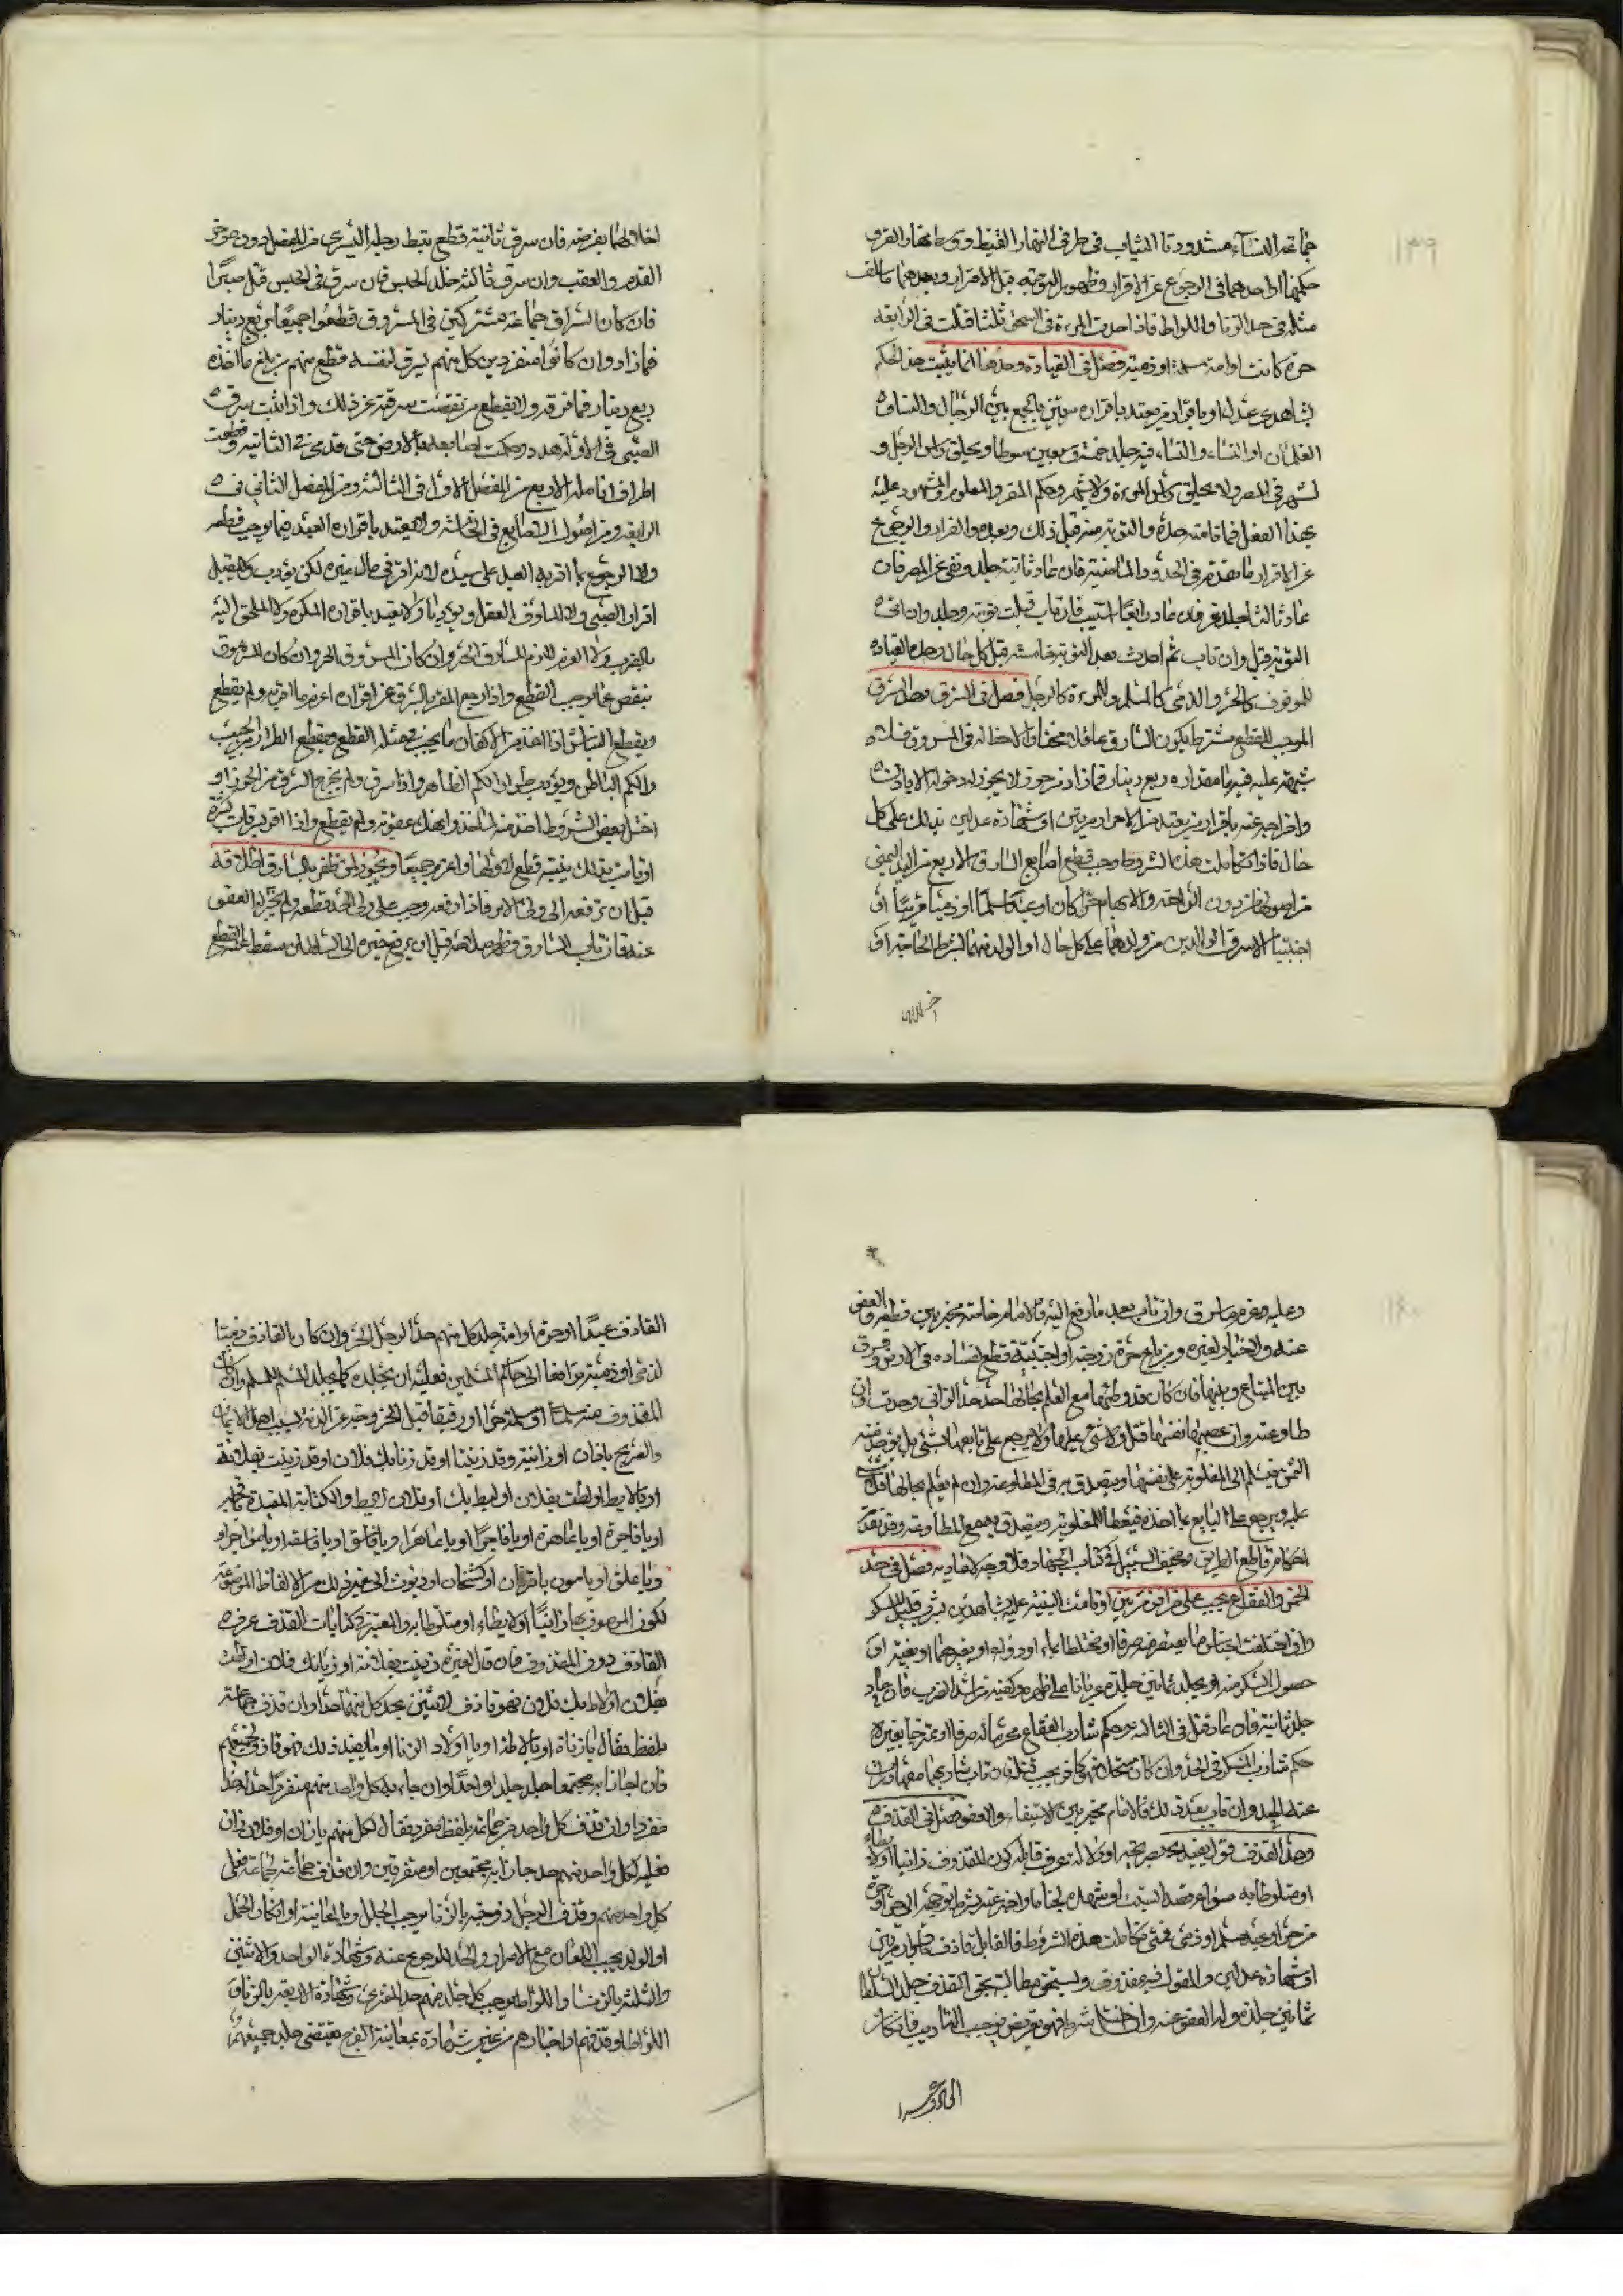 ١٣٩
جماعة النساء مشدودتا الثياب في طرفي النهار القيظ ووسطها والقر و
حكمهما او احدهما في الرجوع عن الاقرار وظهور التوبة قبل الاقرار وبعدهما ما سلف
مثله في حد الزنا واللواط فاذا احدت المرءة في السحق ثلثا قتلت في الرابعة
حرة كانت او امة مسلمة او ذمية فصل في القيادة وحدها انما يثبت هذا الحكم
بشاهدي عدل او باقرار من يعتد باقراره مرتين بالجمع بين الرجال والنساء و
الغلمان او النساء والنساء فيه جلد خمسة وسبعين سوطا ويحلق راس الرجل و
يشهر في المصر ولا يحلق راس المرءة ولا يشهر وحكم المقر والمعلوم والمشهود عليه
بهذا الفعل فما قامته حده والتوبة منه قبل ذلك وبعده والفرار والرجوع
عن الاقرار ما تقدم في الحدود الماضية فان عاد ثانية جلد ونفي عن المصر فان
عاد ثالثا جلد فان عاد رابعا استتيب فان تاب قبلت توبته وجلد وان ابى
التوبة قتل وان تاب ثم احدث بعد التوبة خامسة قتل على كل حال وحد العبد في القيادة
كالحر والذمي كالمسلم والمرءة كالرجل فصل في السرق وحد السرق
الموجب للقطع مشترط بكون السارق عاقلا مختارا لا حظ له في المسروق ولا
شبهة عليه فيه ما مقداره ربع دينار فما زاد من حرز لا يجوز له دخوله الا باذن
واخراجه عنه باقرار من يعتد من الاحرار مرتين او شهادة عدلين بذلك على كل
حال فاذا تكاملت هذه الشروط وجب قطع اصابع السارق الاربع من اليد اليمنى
من اصولها من دون الراحة والابهام حرا كان او عبدا مسلما او ذميا قريبا او
اجنبيا الا سرق الوالدين من ولدهما على كل حال او الولد منهما بشرط الحاجة او
اخلالهما
اخلالهما بفرضه فان سرق ثانية قطع مشط رجله اليسرى من المفصل دون موخر
القدم والعقب وان سرق ثالثة خلد الحبس فان سرق في الحبس قتل صبرا
فان كان السراق جماعة مشتركين في المسروق قطعوا جميعا بربع دينار
فما زاد وان كانوا منفردين كل منهم يسرق لنفسه قطع منهم من بلغ ما اخذه
ربع دينار فما فوقه ولا يقطع من نقصت سرقته عن ذلك واذا ثبت سرق
الصبي في الاولة هدد وحكت اصابعه بالارض حتى تدمى وفي الثانية قطعت
اطراف انامله الاربع من المفصل الاول وفي الثالثة من المفصل الثاني وفي
الرابعة من اصول الاصابع في الخامسة ولا يعتد باقرار العبد فيما يوجب قطعه
ولا الرجوع بما اقر به العبد على سيده لانه اقر في مال غيره لكن يؤدب ولا يقبل
اقرار الصبي ولا المأوف العقل ويؤدبا ولا يعتد باقرار المكره ولا الملجئ اليه
بالضرب والغرم لازم للسارق الحر وان كان المسروق الحر وان كان المسروق
ينقص عما يوجب القطع واذا رجع المقر بالسرق عن اقراره اغرم ما اقر به ولم يقطع
ويقطع النباش اذا اخذ من الاكفان ما يجب في مثله القطع ويقطع الطرار من الجيب
والكم الباطن ويؤدب من الكم الظاهر واذا سرق ولم يخرج السرق من الحرز او
اختل بعض الشروط اخذ منه المأخوذ وانهك عقوبة ولم يقطع واذا اقر بسرقات كثيرة
او قامت بذلك بينة قطع لاولها واغرم جميعا ويجوز لمن ظفر بالسارق اطلاقه
قبل ان يرفعه الى ولي الامر فاذا رفعه وجب على ولي الحد قطعه ولم يجز له العفو
عنه فان تاب السارق وظهر صلاحه قبل ان يرفع خبره الى السلطان سقط عنه القطع
١٤٠
وعليه غرم ما سرق وان تاب بعد ما رفع اليه فالامام خاصة مخير بين قطعه والعفو
عنه ولا خيار لغيره ومن باع حرة زوجته او اجنبية قطع لفساده في الارض وفرق
بين المبتاع وبينها فان كان قد وطئها مع العلم بحالها حد حد الزاني وحدت ان
طاوعته وان غصبها نفسها قتل ولا شئ عليها ولا يرجع على بايعها بشئ بل يؤخذ منه
الثمن فيسلم الى المغلوبة على نفسها ويتصدق به في المطاوعة وان لم يعلم بحالها فلا شئ
عليه ويرجع على البايع بما اخذه فيعطا المغلوبة ويتصدق به مع المطاوعة وقد تقدم
احكام قاطع الطريق ومخيف السبيل في كتاب الجهاد فلا وجه لاعادته فصل في حد
الخمر والفقاع يجب على من اقر مرتين او قامت البينة عليه بشاهدين بشرب قليل المسكر
وان اختلفت اجناس ما يعتصر منه صرفا او مختلطا بماء او دواء او بغيرهما او بغيره او
حصول السكر منه ان يجلد ثمانين جلدة عريانا على ظهره وكتفيه من اشد الضرب فان عاد
جلد ثانية فان عاد قتل في الثالثة وحكم شارب الفقاع محرما له صرفا او ممتزجا بغيره
حكم شارب المسكر في الحد وان كان مستحلا فهو كافر يجب قتله فان تاب شاربهما
عنه الحد وان تاب بعد ذلك فالامام مخير بين الاستيفاء والعفو فصل في القذف
وحد القذف قول يفيد بصريحه او دلالة عرف قايله كون المقذوف زانيا او لايطا
او متلوطا به سواء قصد السبب او شهد لجا بما واخبر عنه بشرط توجهه الى حر او حرة
من حر او عبد مسلم او ذمي فمتى تكاملت هذه الشروط فالقايل قاذف باقراره مرتين
او شهادة عدلين والمقول فيه مقذوف ويستحق مطالبته بحق القذف جلد السلطان
ثمانين جلدة وله العفو عنه وان اختل شرط فهو تعريض يوجب التاديب فان كان
القاذف عبدا
القاذف عبدا او حرة او امة جلد كل منهم حد الرجل الحر وان كان القاذف ذميا
لذمي او ذمية ترافعا الى حاكم المسلمين فعليه ان يجلده كما يجلد المسلم للمسلم وان كان
المقذوف منه مسلما او مسلمة حرا او رقيقا قتل لخروجه عن الذمة بسب اهل الايمان
والصريح يا زان او زانية وقد زنيت او قد زنا بك فلان او قد زنيت بفلانة
او يا لايط او لطت بفلان او ليط بك او بلان لايط والكناية المفيدة يا قحبة
او يا فاجرة او يا عاهرة او يا فاجرا او يا عاهرا ويا فاسق او يا فاسقة او يا مواجر او
ويا علق او يا مابون يا قرنان او كشحان او ديوث الى غير ذلك من الالفاظ الموضوعة
لكون الموصوف بها زانيا او لايطا او متلوطا به والمعتبر في كنايات القذف عرف
القاذف دون المقذوف فان قال لغيره زنيت بفلانة او زنا بك فلان او لطت
بفلان او لاط بك فلان فهو قاذف لاثنين يحد لكل منهما حدا وان قذف جماعة
بلفظ فقال يا زناة او يا لاطة او يا اولاد الزنا او ما يفيد ذلك فهو قاذف لجميعهم
فان جاءوا به مجتمعا جلد حدا واحدا وان جاء به كل واحد منهم منفردا حد لكل واحد حدا
مفردا وان قذف كل واحد من جماعة بلفظ مفرد فقال لكل منهم يا زان او فلان زان
فعليه لكل واحد منهم حد جاؤا به مجتمعين او متفرقين وان قذف جماعة جماعة فعلى
كل واحد منهم وقذف الرجل زوجته بالزنا يوجب الجلد وبالمعاينة او انكار الحمل
او الولد يجب اللعان مع الاصرار والحد للرجوع عنه وشهادة الواحد والاثنين
والثلثة بالزنا واللواط يوجب كل جلد منهم حد المفتري وشهادة الاربعة بالزنا و
اللواط او قذفهم او اخبارهم من غير شهادة بمعاينة الفرج يقتضي جلد جميعهم و